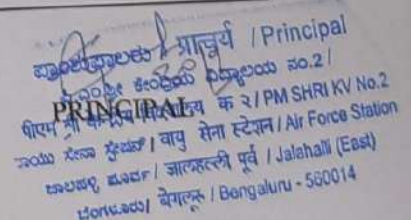 ಪ್ರಾಂಶುಪಾಲರು / प्राचार्य / Principal
ಪಿಎಂ ಶ್ರೀ ಕೇಂದ್ರೀಯ ವಿದ್ಯಾಲಯ ನಂ.2 /
PRINCIPAL
पीएम श्री क्र २ / PM SHRI KV No.2
ವಾಯು ಸೇನಾ ಸ್ಟೇಷನ್ / वायु सेना स्टेशन / Air Force Station
ಜಾಲಹಳ್ಳಿ ಪೂರ್ವ / जालहल्ली पूर्व / Jalahalli (East)
ಬೆಂಗಳೂರು / बेंगलूरु / Bengaluru - 560014